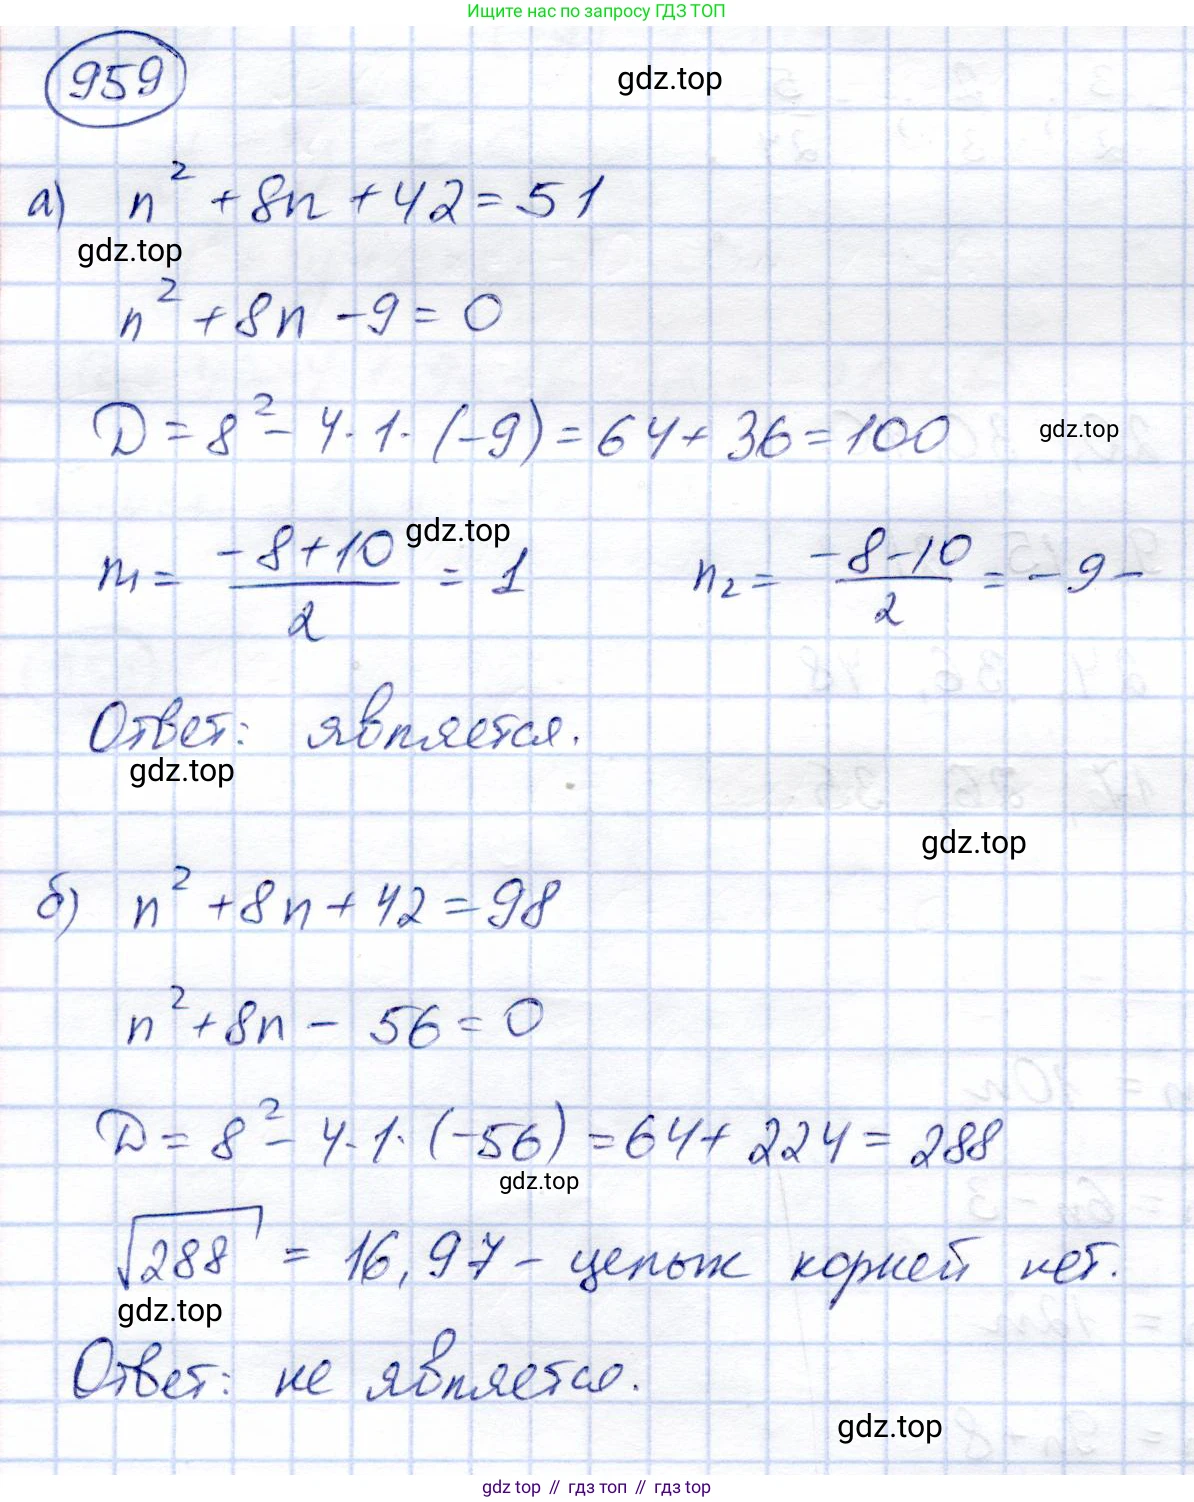 Ищите нас по запросу ГДЗ ТОП
959
gdz.top
а) n² + 8n + 42 = 51
gdz.top
n² + 8n - 9 = 0
D = 8² - 4 · 1 · (-9) = 64 + 36 = 100
gdz.top
gdz.top
n₁ = (-8+10)/2 = 1 n₂ = (-8-10)/2 = -9 -
Ответ: является.
gdz.top
gdz.top
б) n² + 8n + 42 = 98
n² + 8n - 56 = 0
D = 8² - 4 · 1 · (-56) = 64 + 224 = 288
gdz.top
√288 = 16,97 - целых корней нет.
gdz.top
Ответ: не является.
gdz.top
gdz top // гдз топ // гдз top